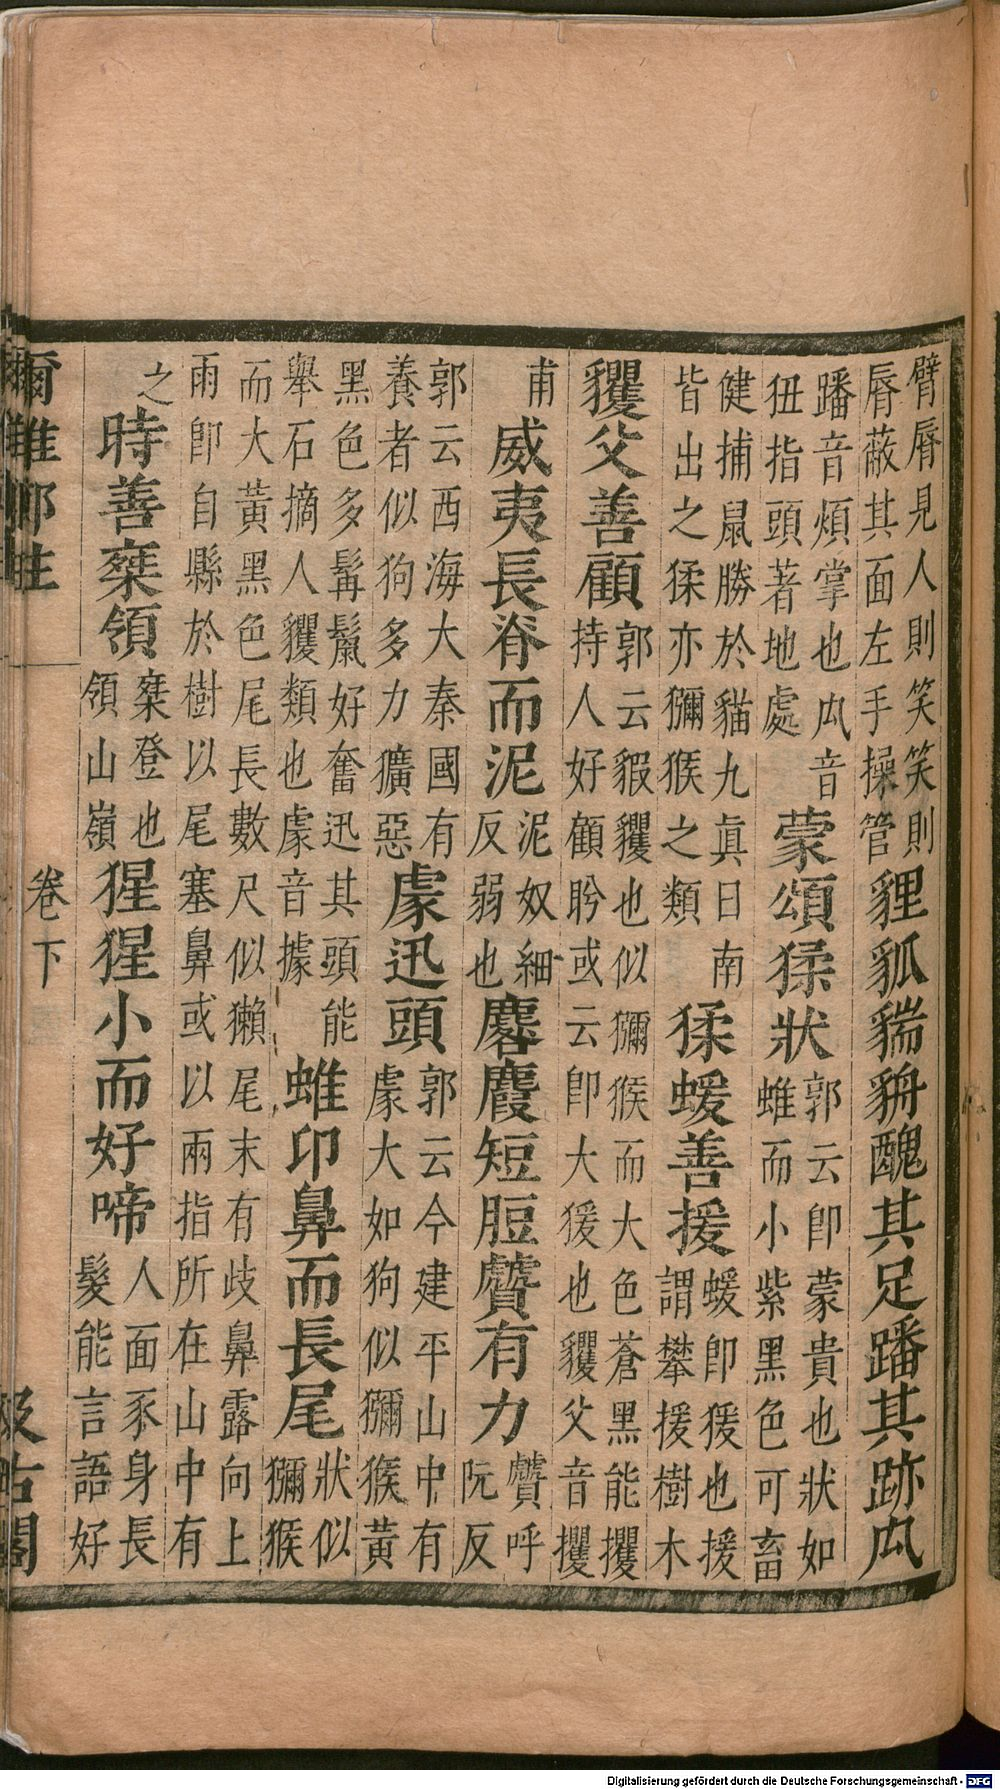 臂脣見人則笑笑則
脣蔽其面左手操管
貍狐貒貈醜其足蹯其跡厹
蹯音煩掌也厹音
狃指頭著地處
蒙頌猱狀
郭云卽蒙貴也狀如
蜼而小紫黑色可畜
健捕鼠勝於貓九真日南
皆出之猱亦獼猴之類
猱蝯善援
蝯卽猨也援
謂攀援樹木
貜父善顧
郭云貑貜也似獼猴而大色蒼黑能攫
持人好顧盻或云卽大猨也貜父音攫
甫
威夷長脊而泥
泥奴細
反弱也
麔麚短脰贙有力
贙呼
阮反
郭云西海大秦國有
養者似狗多力獷惡
豦迅頭
郭云今建平山中有
豦大如狗似獼猴黃
黑色多髯鬣好奮迅其頭能
舉石摘人貜類也豦音據
蜼卬鼻而長尾
狀似
獼猴
而大黃黑色尾長數尺似獺尾末有歧鼻露向上
雨卽自縣於樹以尾塞鼻或以兩指所在山中有
之
時善椉領
椉登也
領山嶺
猩猩小而好啼
人面豕身長
髮能言語好
爾雅鄭註
卷下
汲古閣
Digitalisierung gefördert durch die Deutsche Forschungsgemeinschaft - DFG